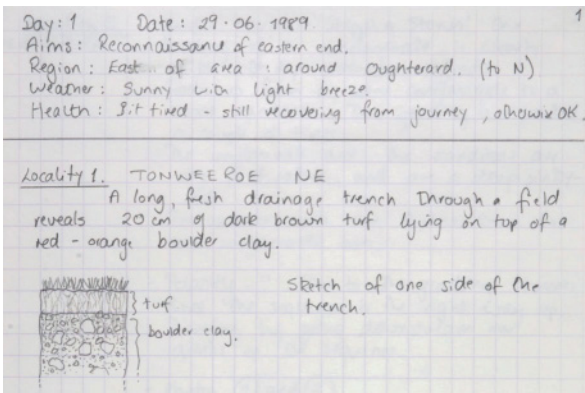 1
Day: 1 Date: 29.06.1989.
Aims: Reconnaissance of eastern end.
Region: East of area: around Oughterard. (to N)
Weather: Sunny with light breeze.
Health: Bit tired - still recovering from journey, otherwise OK.
Locality 1. TONWEEROE NE
A long, fresh drainage trench through a field
reveals 20 cm of dark brown turf lying on top of a
red-orange boulder clay.
Sketch of one side of the
trench.
turf
boulder clay.